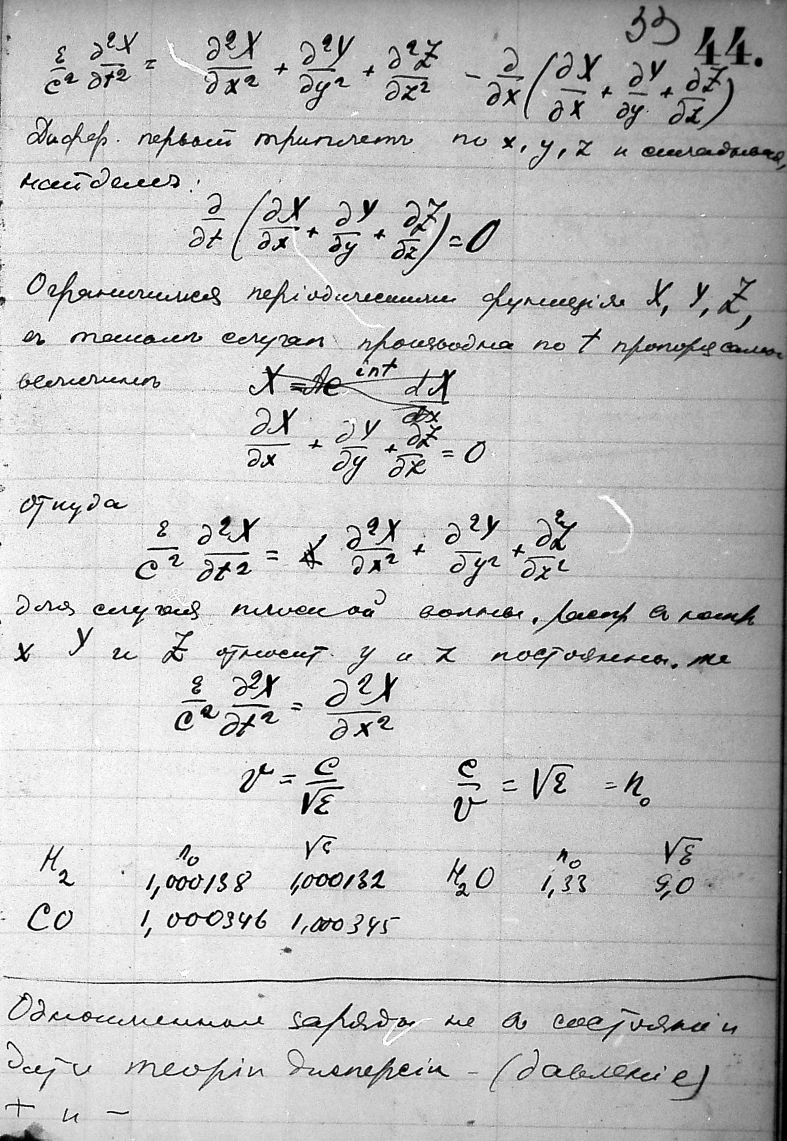 33 44.
ε/c² ∂²X/∂t² = ∂²X/∂x² + ∂²Y/∂y² + ∂²Z/∂z² − ∂/∂x (∂X/∂x + ∂Y/∂y + ∂Z/∂z)
Дифер. первый триплетъ по x, y, z и складывая,
найдемъ:
∂/∂t (∂X/∂x + ∂Y/∂y + ∂Z/∂z) = 0
Ограничимся періодическими функціям X, Y, Z,
въ такомъ случаѣ производна по t пропорц самой
величинѣ X = Ae^int dX/dx
∂X/∂x + ∂Y/∂y + ∂Z/∂z = 0
откуда
ε/c² ∂²X/∂t² = ∂²X/∂x² + ∂²Y/∂y² + ∂²Z/∂z²
для случая плоской волны, распр в напр
x Y и Z относит. y и z постоянны,
ε/c² ∂²X/∂t² = ∂²X/∂x²
v = c/√ε c/v = √ε = n₀
n₀ √ε n₀ √ε
H₂ 1,000138 1,000132 H₂O 1,33 9,0
CO 1,000346 1,000345
Одноименные заряды не в состояніи
дати теоріи дисперсіи – (давленіе)
+ и −